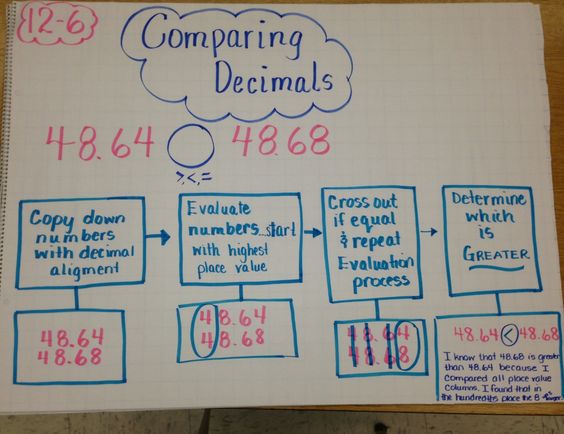 12-6
Comparing
Decimals
48.64 48.68
>,<,=
Copy down
numbers
with decimal
aligment
Evaluate
numbers...start
with highest
place value
Cross out
if equal
& repeat
Evaluation
process
Determine
which
is
GREATER
48.64
48.68
48.64
48.68
48.64
48.68
48.64 < 48.68
I know that 48.68 is greater
than 48.64 because I
compared all place value
columns. I found that in
the hundredths place the 8 is